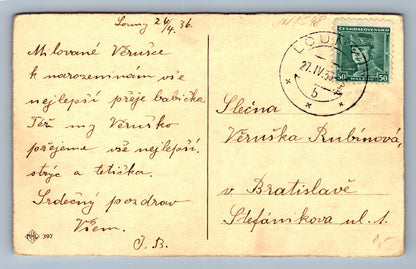 Louny 26/4. 36.
Milované Věrušce
k narozeninám vše
nejlepší přeje babička
Též my Věruško
přejeme vše nejlepší.
strýc a tetička.
Srdečný pozdrav
Všem.
J. B.
397
ČESKOSLOVENSKO
50 50
LOUNY
27.IV.36
b
Slečna
Věruška Rubínová,
v Bratislavě
Štefánikova ul. 1.